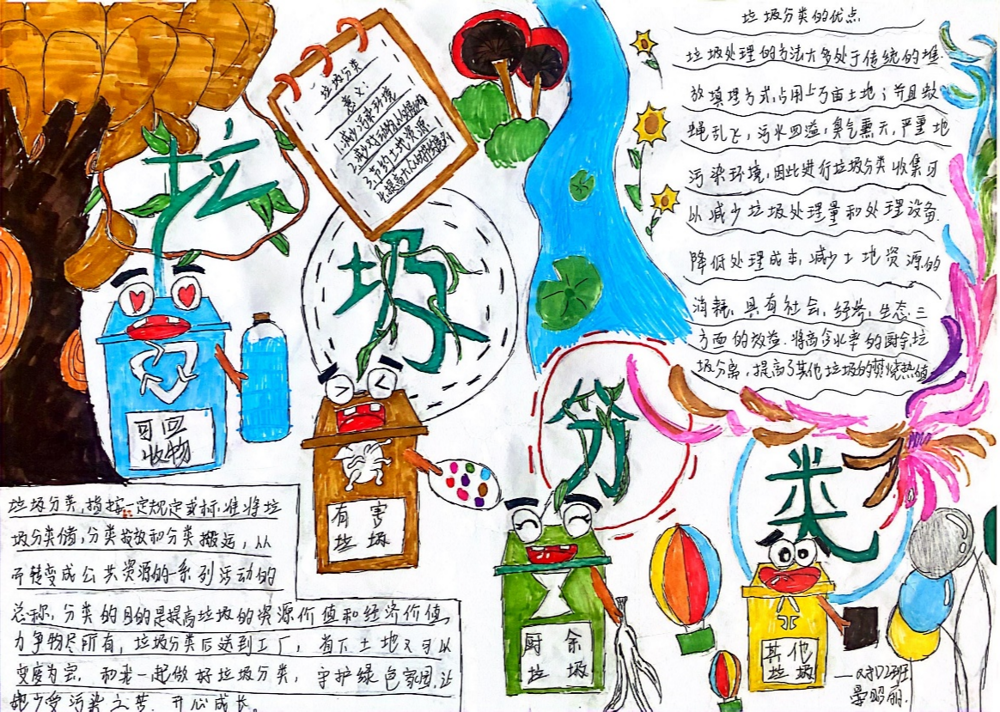 垃
圾
分
类
垃圾分类
意义：
1.减少污染环境
3.节约土地资源
垃圾分类的优点
垃圾处理的方法大多处于传统的堆
放填埋方式，占用上万亩土地；并且蚊
蝇乱飞，污水四溢，臭气熏天，严重地
污染环境，因此进行垃圾分类收集可
以减少垃圾处理量和处理设备
降低处理成本，减少土地资源的
消耗，具有社会，经济，生态三
方面的效益，将高含水率的厨余垃
圾分离，提高了其他垃圾的焚烧热值
可回
收物
有害
垃圾
厨余
垃圾
其他
垃圾
垃圾分类，指按一定规定或标准将垃
圾分类储，分类投放和分类搬运，从
而转变成公共资源的一系列活动的
总称，分类的目的是提高垃圾的资源价值和经济价值，
力争物尽所有，垃圾分类后送到工厂，省下土地又可以
变废为宝，和我一起做好垃圾分类，守护绿色家园，让
地少受污染之苦，开心成长。